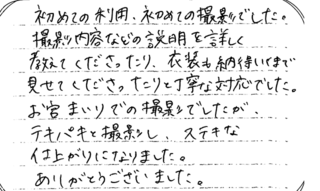 初めての利用、初めての撮影でした。
撮影内容などの説明を詳しく
教えてくださったり、衣装も納得いくまで
見せてくださったりと丁寧な対応でした。
お宮まいりでの撮影でしたが、
テキパキと撮影し、ステキな
仕上がりになりました。
ありがとうございました。